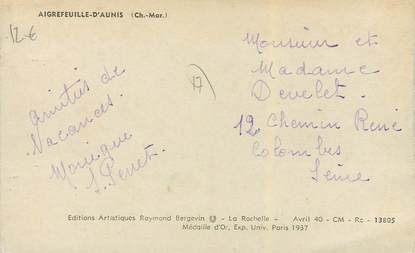 12€
AIGREFEUILLE-D'AUNIS (Ch.-Mar.)
Amitiés de
Vacances.
Monique
17
Monsieur et
Madame
Develet.
12 Chemin René
Colombes
Seine
Editions Artistiques Raymond Bergevin - La Rochelle - Avril 40 - CM - Rc - 13805
Médaille d'Or, Exp. Univ. Paris 1937